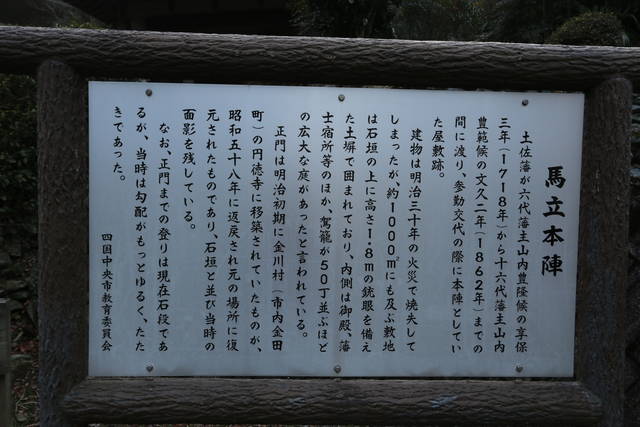 馬立本陣
土佐藩が六代藩主山内豊隆候の享保
三年(1718年)から十六代藩主山内
豊範候の文久二年(1862年)までの
間に渡り、参勤交代の際に本陣としてい
た屋敷跡。
建物は明治三十年の火災で焼失して
しまったが、約1000㎡にも及ぶ敷地
は石垣の上に高さ1.8mの銃眼を備え
た土塀で囲まれており、内側は御殿、藩
士宿所等のほか、駕籠が50丁並ぶほど
の広大な庭があったと言われている。
正門は明治初期に金川村(市内金田
町)の円徳寺に移築されていたものが、
昭和五十八年に返戻され元の場所に復
元されたものであり、石垣と並び当時の
面影を残している。
なお、正門までの登りは現在石段であ
るが、当時は勾配がもっとゆるく、たた
きであった。
四国中央市教育委員会